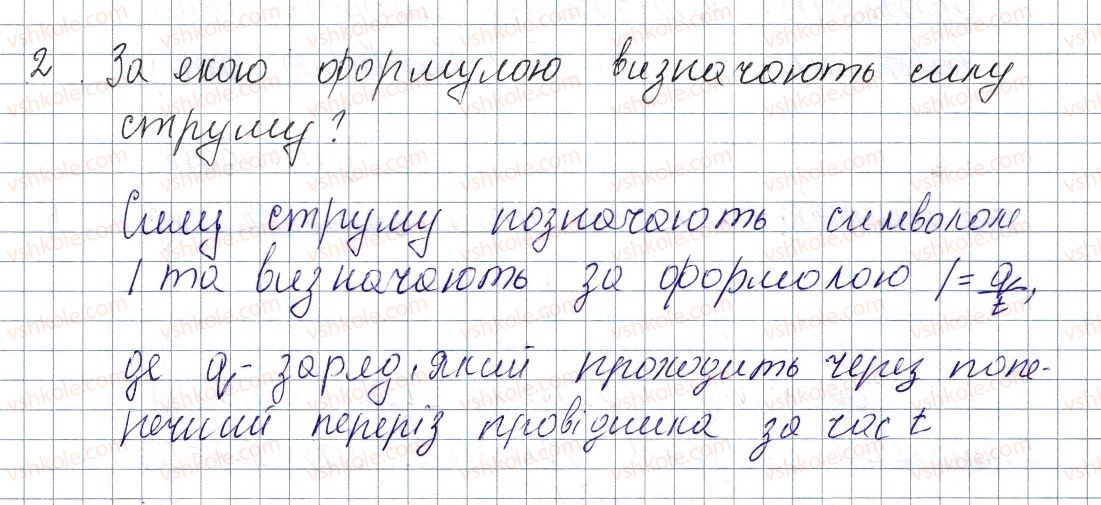 2. За якою формулою визначають силу
струму?
Силу струму позначають символом
I та визначають за формолою I = q/t,
де q - заряд, який проходить через попе-
речний переріз провідника за час t